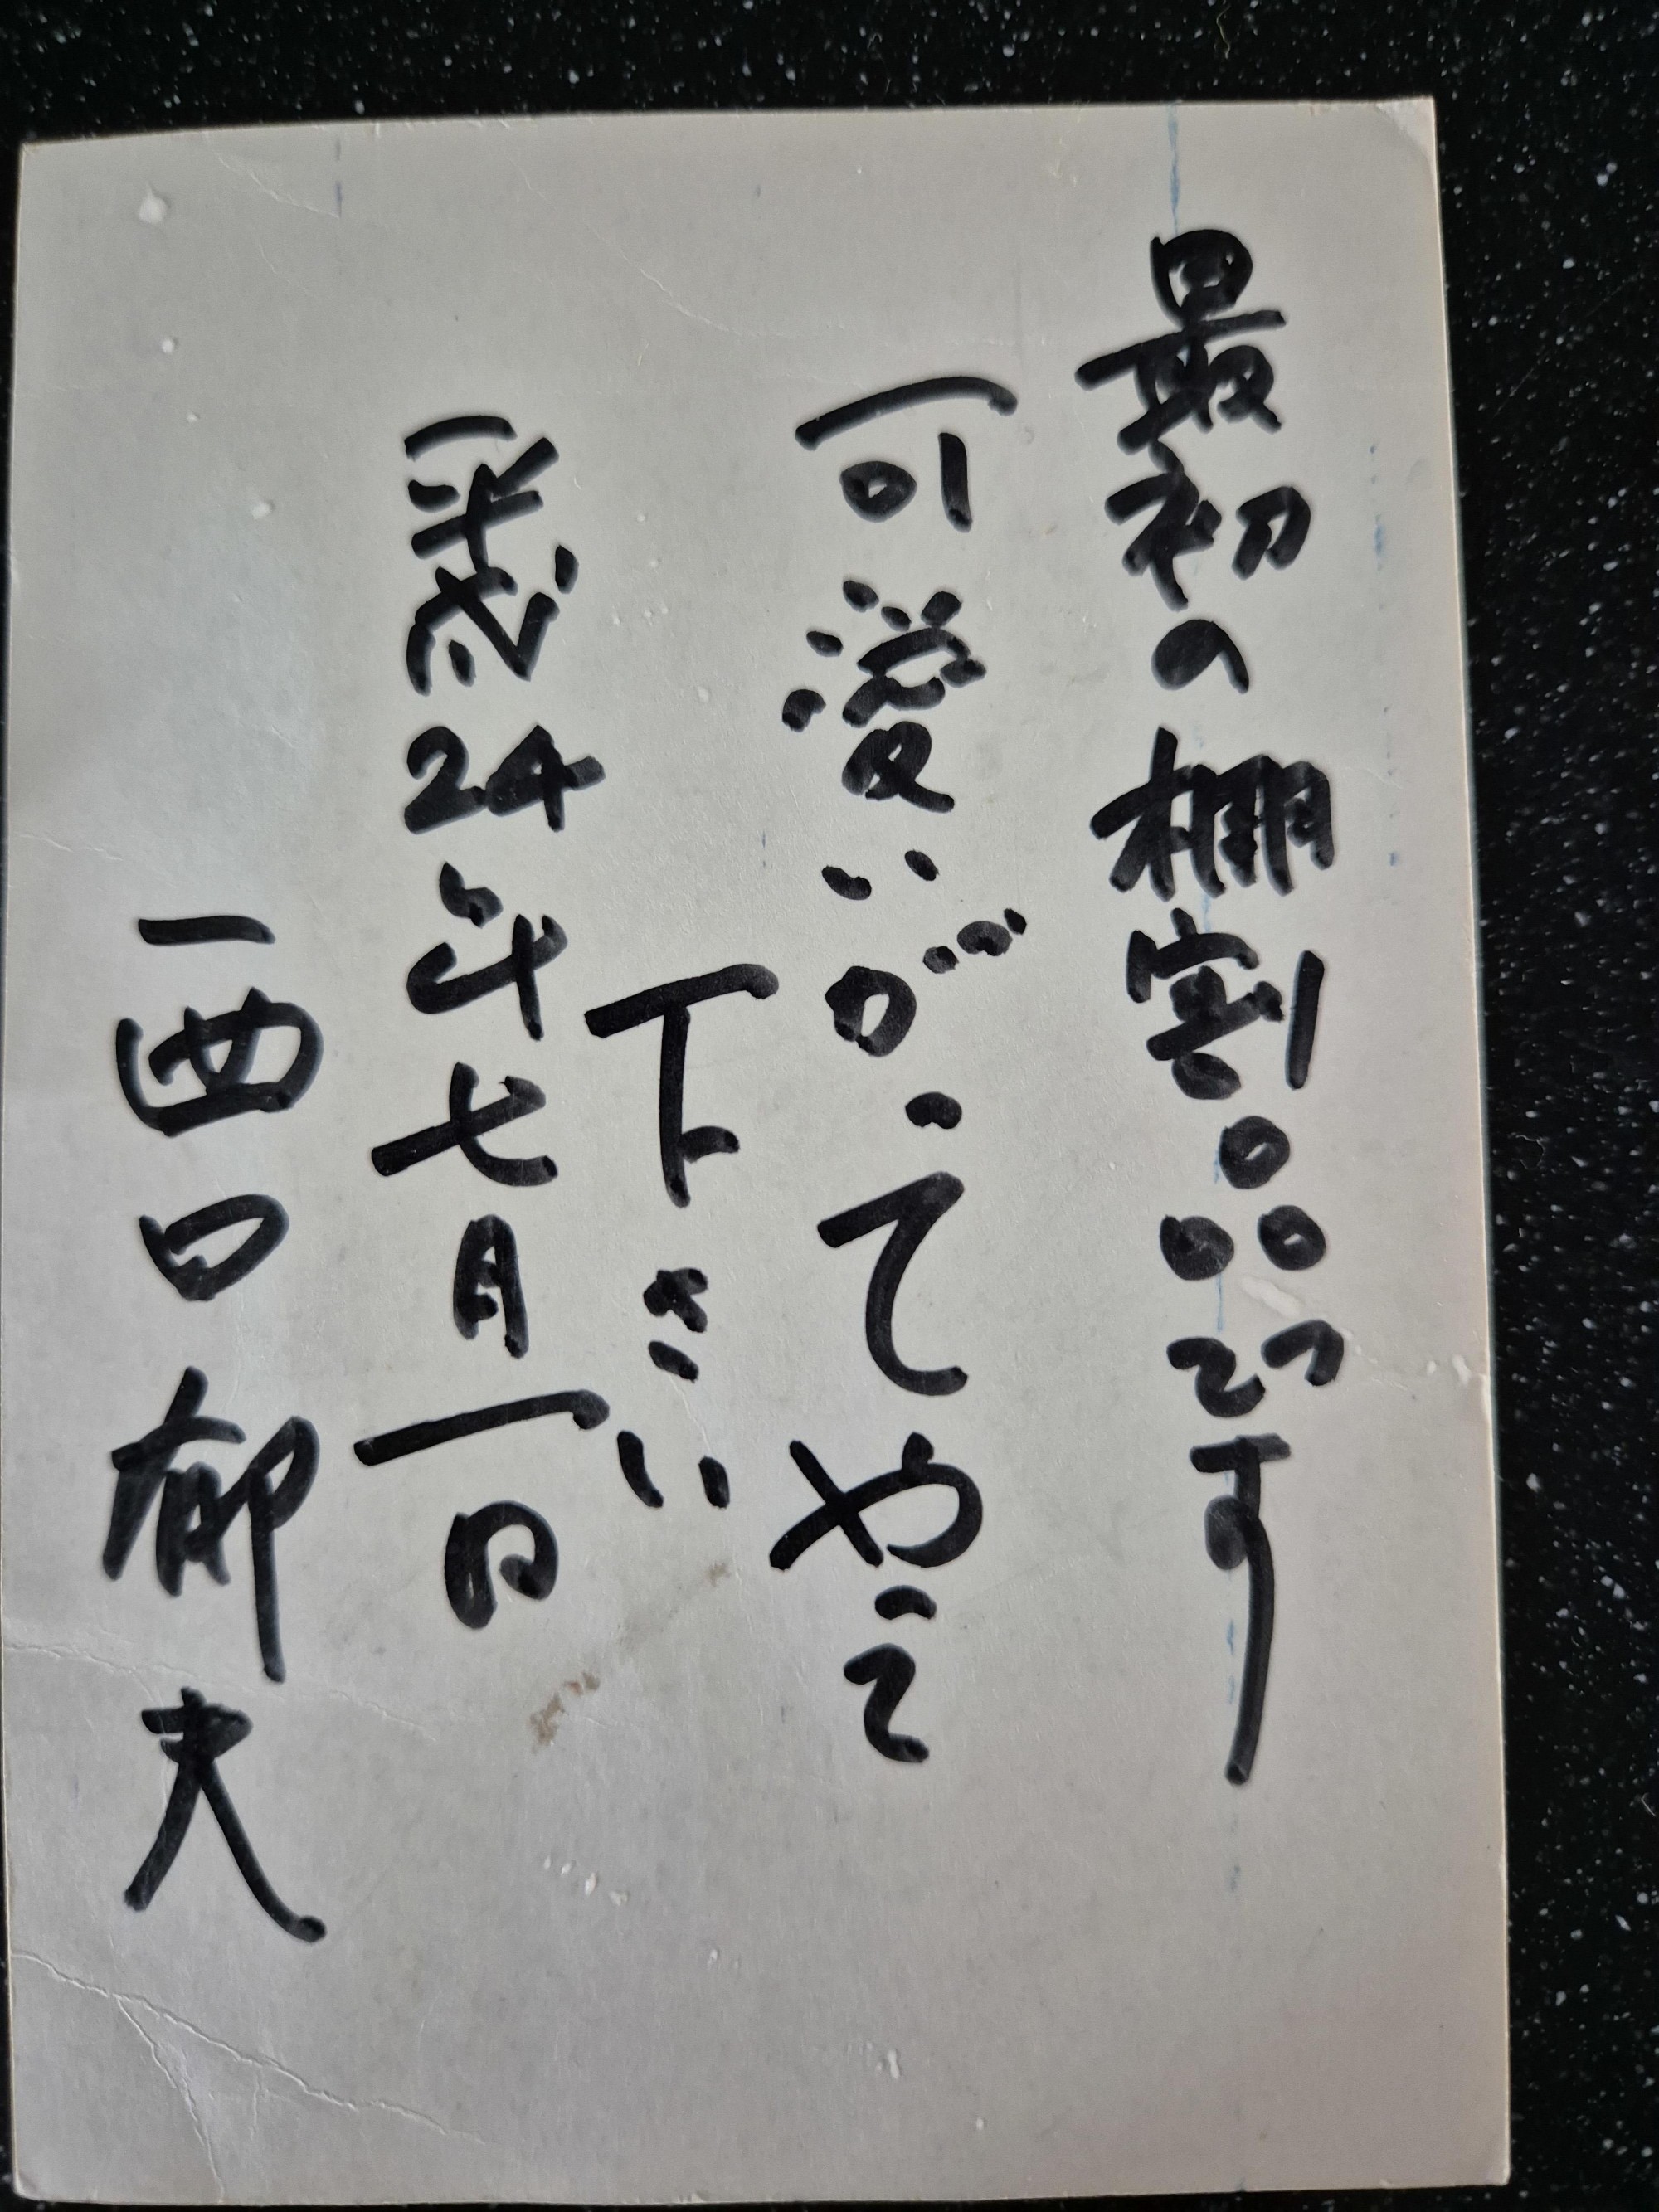 最初の棚割品です
可愛いがってやって
下さい
平成24年七月一日
西口郁夫